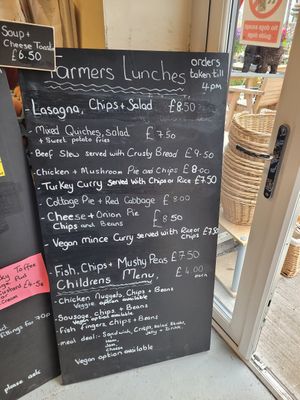 Soup +
Cheese Toastie
£6.50
Farmers Lunches
orders
taken till
4pm
- Lasagna, Chips + Salad £8.50
- Mixed Quiches, salad £7.50
+ Sweet potato fries
- Beef Stew served with Crusty Bread £9.50
- Chicken + Mushroom Pie and Chips £8.00
- Turkey Curry served with Chips or Rice £7.50
- Cottage Pie + Red Cabbage £8.00
- Cheese + Onion Pie £8.50
Chips and Beans
- Vegan mince Curry served with Rice or Chips £7.50
- Fish, Chips + Mushy Peas £7.50
Childrens Menu, £4.00
each
- Chicken Nuggets, Chips + Beans
Veggie option available
- Sausage, chips + Beans
Vegan option available
- Fish fingers Chips + Beans
- meal deal: Sandwich, Crisps, Salad Sticks,
Jelly + Drink
Ham,
Jam,
Cheese
Vegan option available
Toffee
Plum
Custard
£4.50
fillings for 70p
please ask